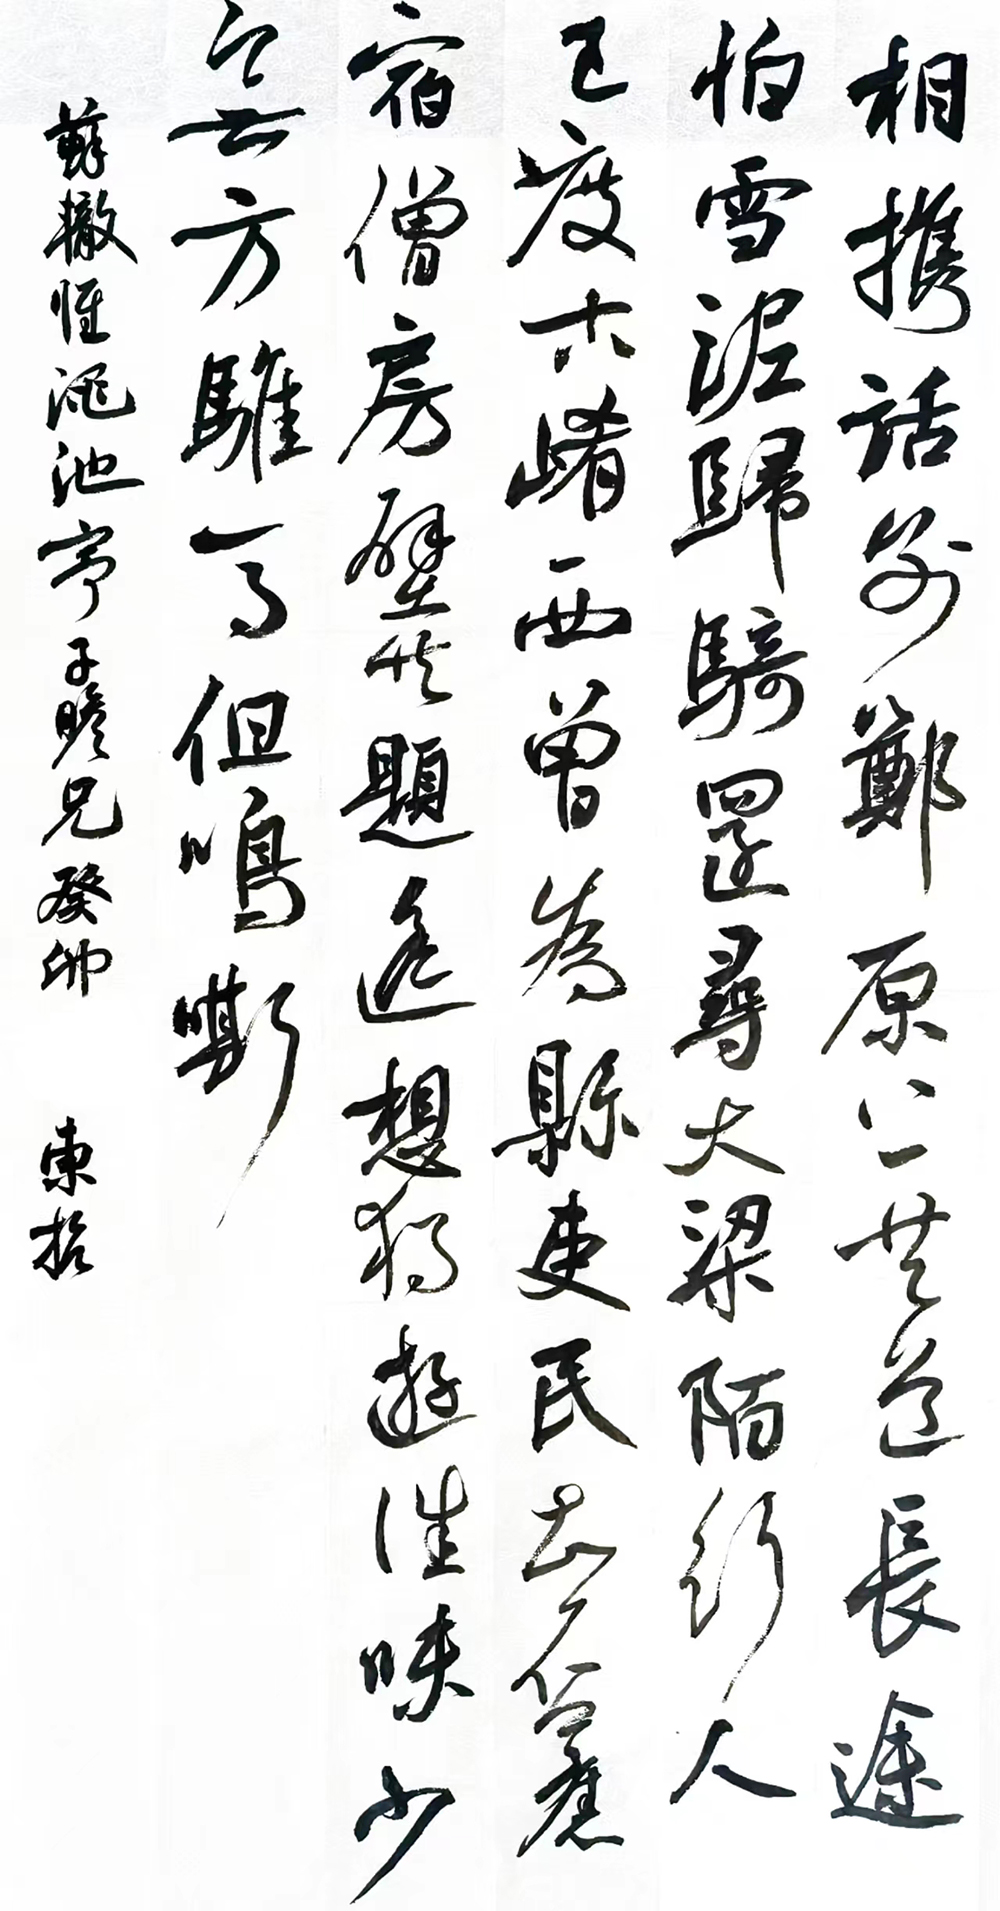 相携話別鄭原上共道長途
怕雪泥歸騎還尋大梁陌行人
已度古崤西曾為縣吏民知否舊
宿僧房壁共題遙想獨遊佳味少
無方騅馬但鳴嘶
蘇轍懷澠池寄子瞻兄癸卯 東